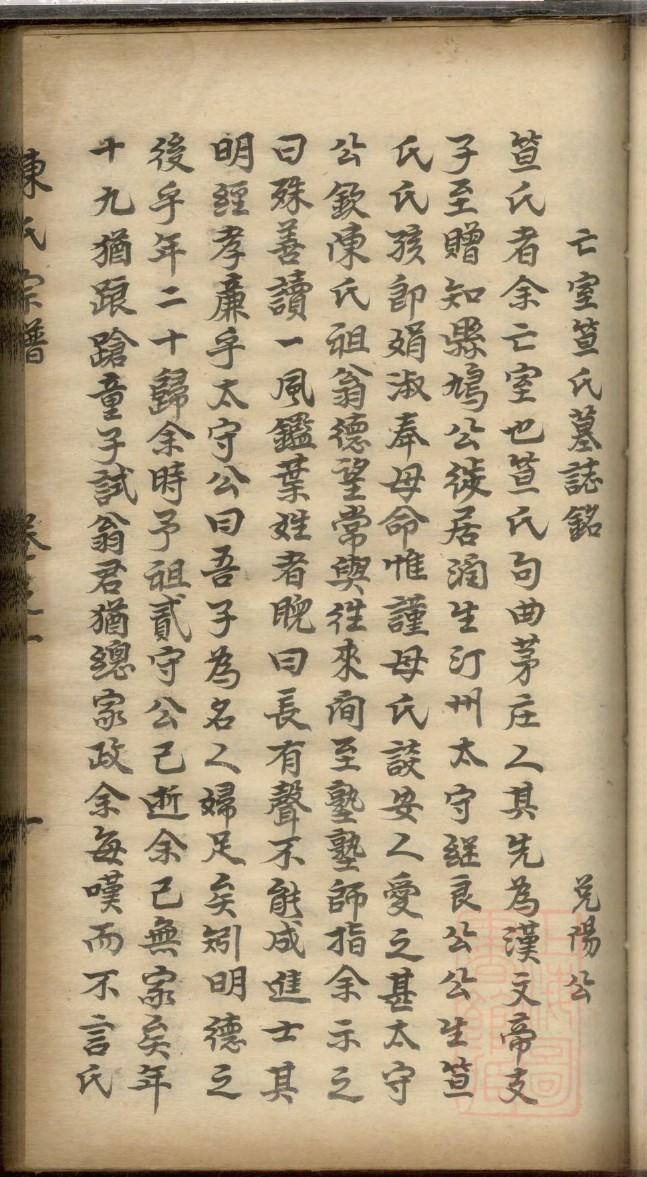 亡室笪氏墓誌銘 兌陽公
笪氏者余亡室也笪氏句曲茅庄人其先為漢文帝支
子至贈知縣鳩公徙居潤生汀州太守繼良公公生笪
氏氏孩即娟淑奉母命惟謹母氏談安人愛之甚太守
公欽陳氏祖翁德望常與往來間至塾塾師指余示之
曰殊善讀一風鑑葉姓者睨曰長有聲不能成進士其
明經孝廉乎太守公曰吾子為名人婦足矣矧明德之
後乎年二十歸余時予祖貳守公已逝余已無家矣年
十九猶踉蹌童子試翁君猶總家政余每嘆而不言氏
陳氏宗譜